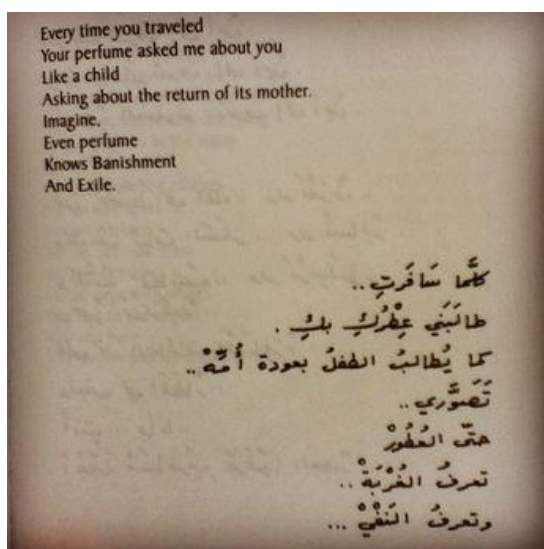 Every time you traveled
Your perfume asked me about you
Like a child
Asking about the return of its mother.
Imagine,
Even perfume
Knows Banishment
And Exile.
كلَّما سَافَرتِ ..
طالَبَني عِطْرُكِ بكِ .
كما يُطالبُ الطفلُ بعودة أُمِّهْ ..
تَصَوَّري ..
حتّى العُطُورْ
تعرفُ الغُرْبَةْ ..
وتعرفُ النَفْيْ ...